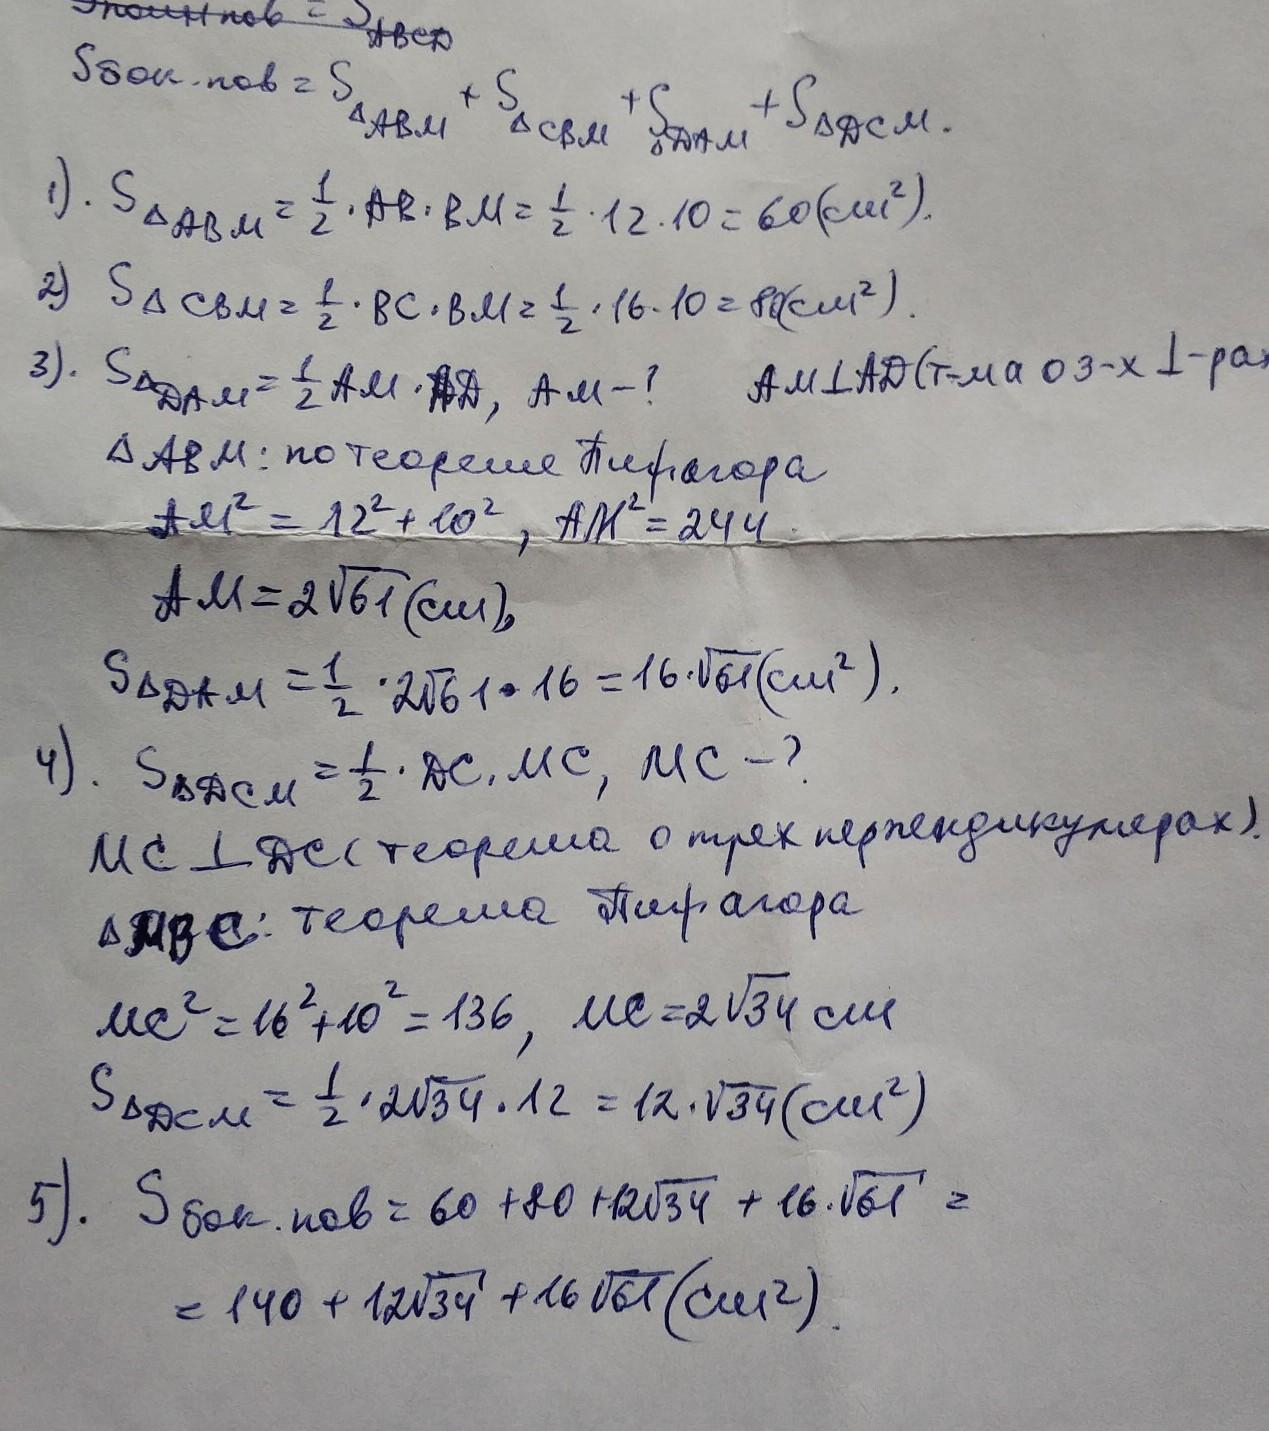 Sполн пов = S ABCD
Sбок. пов = S ΔABM + S ΔCBM + S ΔDAM + S ΔDCM.
1). S ΔABM = 1/2 · AB · BM = 1/2 · 12 · 10 = 60 (см²).
2) S ΔCBM = 1/2 · BC · BM = 1/2 · 16 · 10 = 80 (см²).
3). S ΔDAM = 1/2 AM · AD, AM – ? AM ⊥ AD (т-ма о 3-х ⊥-рах
Δ ABM: по теореме Пифагора
AM² = 12² + 10², AM² = 244.
AM = 2√61 (см),
S ΔDAM = 1/2 · 2√61 · 16 = 16 · √61 (см²).
4). S ΔDCM = 1/2 · DC · MC, MC – ?
MC ⊥ DC (теорема о трех перпендикулярах).
Δ MBC: теорема Пифагора
MC² = 16² + 10² = 136, MC = 2√34 см
S ΔDCM = 1/2 · 2√34 · 12 = 12 · √34 (см²)
5). S бок. пов = 60 + 80 + 12√34 + 16 · √61 =
= 140 + 12√34 + 16√61 (см²).